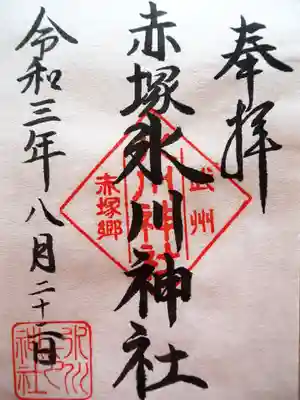 奉拝
武州
赤塚氷川神社
氷川神社
赤塚郷
令和三年八月二十二日